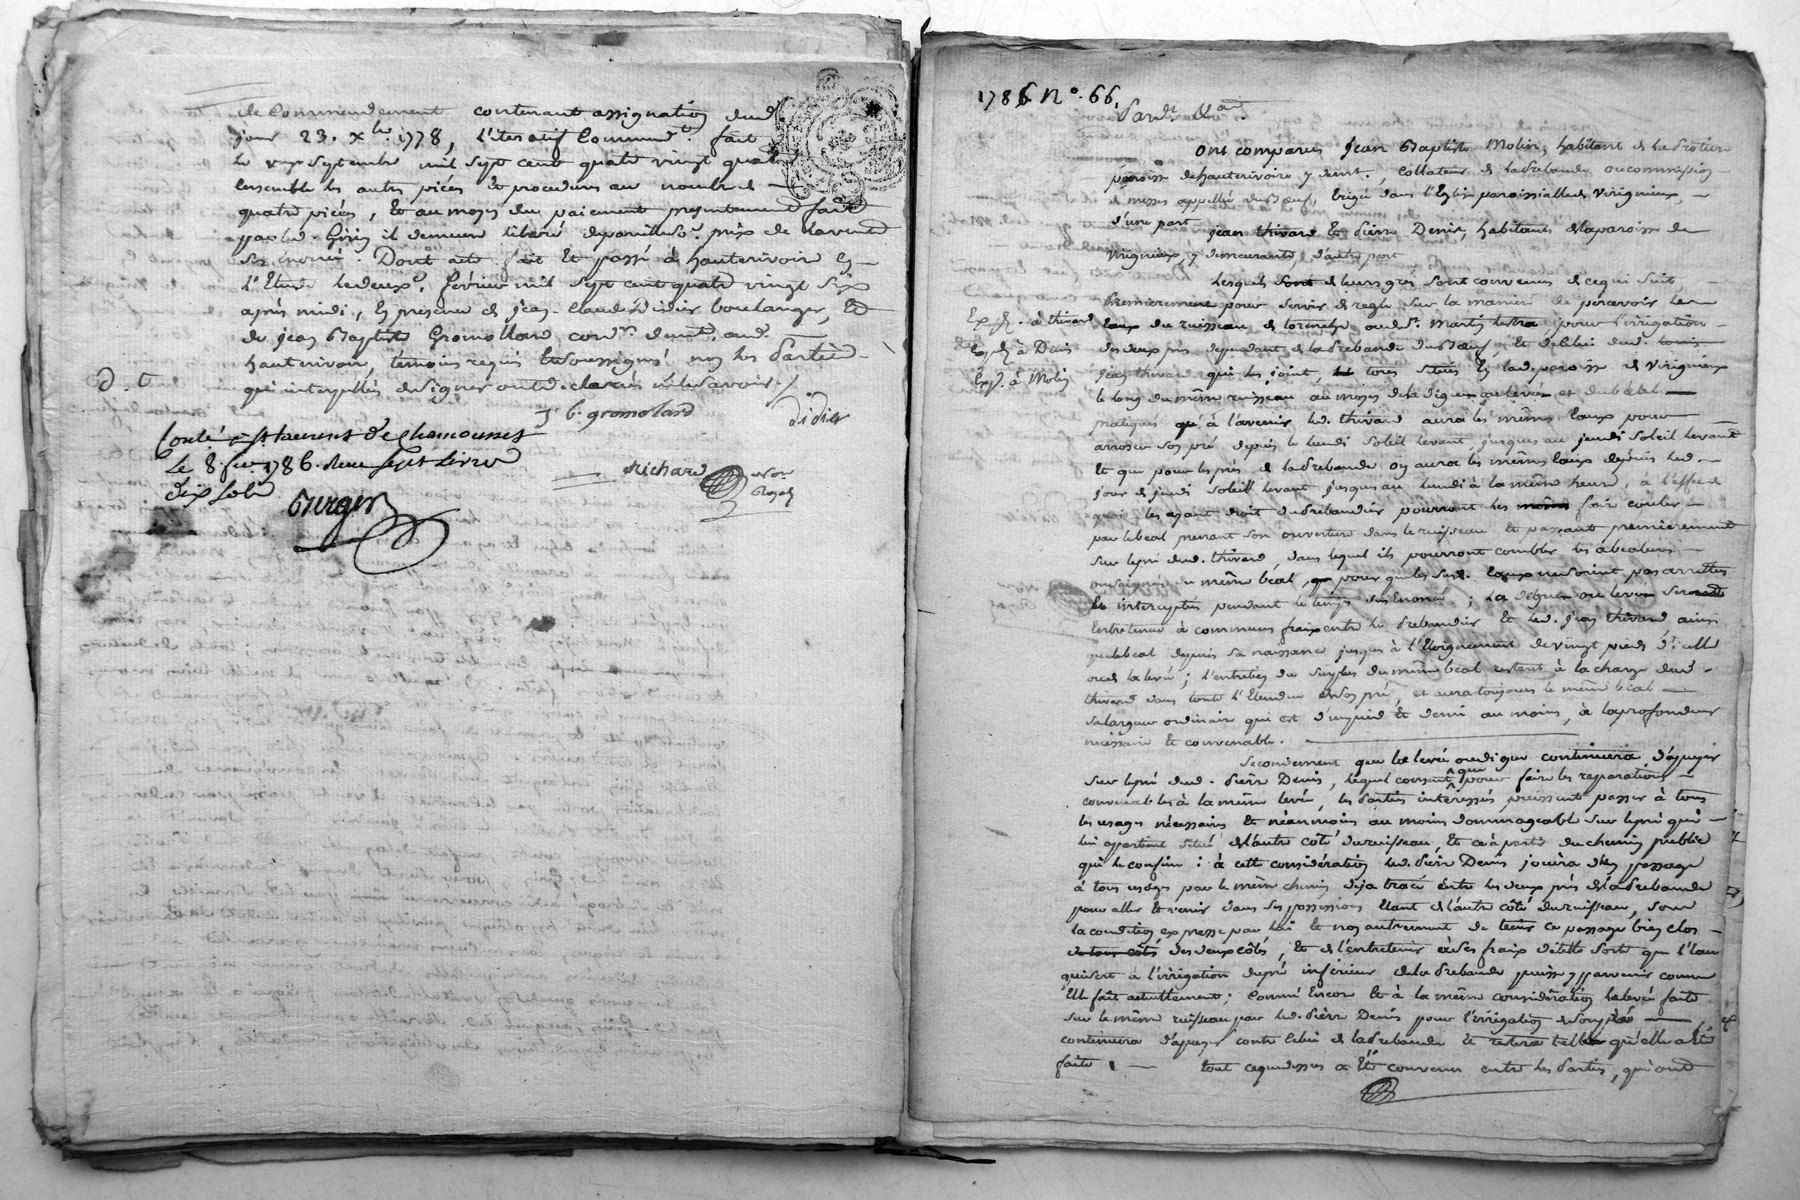 de Commendement contenant assignation dud.
jour 23. xbre 1778, l'iteratif Commend.t fait
le Septembre mil sept cent quatre vingt quatre
ensemble les autres pièces et procedures au nombre de
quatre pièces, Et au moyen du paiement presentement fait
par led. Girin il demeure liberé de pareille so. prix de la vente
sus énoncée. Dont acte fait Et passé à hauterivoire En
l'Etude le deux.e février mil sept cent quatre vingt six
après midi, En presence de jean-Claude Didier boulanger, Et
de jean Baptiste Gromollard cord.er demt. aud.
hauterivoire, temoins requis Et soussignés non les Parties
qui interpellées de signer ont declaré ne le savoir./.
J b. gromolard
didier
Conlé à St laurens de Chamousset
Le 8. fer. 1786. Reçu sept livres
dix sols
Richard
Berger
Nore
Royal
1786. No. 66.
Pardt. Nore
Ont comparus Jean Baptiste Molin, habitant de
paroisse de hauterivoire y demt., Collateur de la Prebande ou commission
de messes appellée dubœuf, Erigée dans l'Eglise paroissialle de Virignieux,
d'une part
jean thivard Et Pierre Denis, habitants de la paroisse de
Virignieux, y demeurants, d'autre part
Lesquels sont de leurs gres sont convenus de ce qui suit,
Premierement pour servir de regle sur la maniere de percevoir les
Exp.é à thivard
Eaux du ruisseau de ou de St. Martin lestra pour l'irrigation
des deux prés dependant de la Prebande dubœuf, Et de celui dud.
Exp.é à Denis
Jean thivard qui les joint, tous situés En lad. paroisse de Virignieux
Exp.é à Molin
le long du même ruisseau au moyen de la digue ou levée et du béal
pratiqués qu'à l'avenir led. thivard aura les mêmes Eaux pour
arroser son pré depuis le lundi soleil levant jusques au jeudi soleil levant
Et que pour les prés de la Prebande on aura les mêmes Eaux depuis led.
jour de jeudi soleil levant jusques au lundi à la même heure, à l'effet de
quoi les ayant droit du Prebandier pourront les faire couler
par le béal prenant son ouverture dans le ruisseau Et passant premierement
sur le pré dud. thivard, dans lequel ils pourront combler les
ou saignées du même béal, pour que les sus. Eaux ne soient pas arrettées
ni interceptées pendant le temps sus énoncé; la digue ou levée sera
Entretenue à communs fraix entre le Prebandier Et led. jean thivard ainsi
que le béal depuis sa naissance jusques à l'Eloignement de vingt pieds d'icelle
ou de la levée; l'entretien du surplus du même béal restera à la charge dud.
thivard dans toute l'Etendue de son pré, et aura toujours le même béal
sa largeur ordinaire qui est d'un pied Et demi au moins, à la profondeur
nécessaire Et convenable.
Secondement que la levée ou digue continuera d'appuyer
sur le pré dud. Pierre Denis, lequel consent que pour faire les reparations
convenables à la même levée, les parties intéressées puissent passer à tous
les usages nécessaires Et néanmoins au moins dommageable sur le pré qui
lui appartient situé de l'autre côté du ruisseau, Et ce à partir du chemin public
qui le confine: à cette considération led. Pierre Denis jouira d'un passage
à tous usages par le même chemin déja tracé entre les deux prés de la Prebande
pour aller Et venir dans ses possessions Etant de l'autre côté du ruisseau, sous
la condition expresse par lui Et non autrement de tenir ce passage bien clos
de tous côtés des deux côtés, Et de l'entretenir à ses fraix de telle sorte que l'Eau
qui sert à l'irrigation du pré inférieur de la Prebande puisse y parvenir comme
Elle fait actuellement; Comme Encore Et à la même considération la levée faite
sur le même ruisseau par led. Pierre Denis pour l'irrigation de son pré
continuera d'appuyer contre celui de la Prebande Et restera telle qu'elle a été
faite.
tout ce que dessus a Eté convenu entre les Parties, qui ont